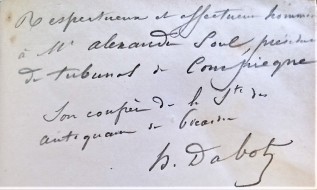 Respectueux et affectueux hommage
à Mr alexandre Sorel, président
du tribunal de Compiègne
Son confrère de la Sté des
antiquaires de Picardie
H. Dabot